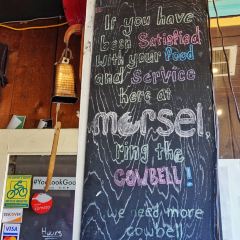 If you have
been Satisfied
with your food
and Service
here at
morsel,
ring the
COWBELL!
we need more
cowbell
#YouLookGoo
DISCOVER
VISA
Hours